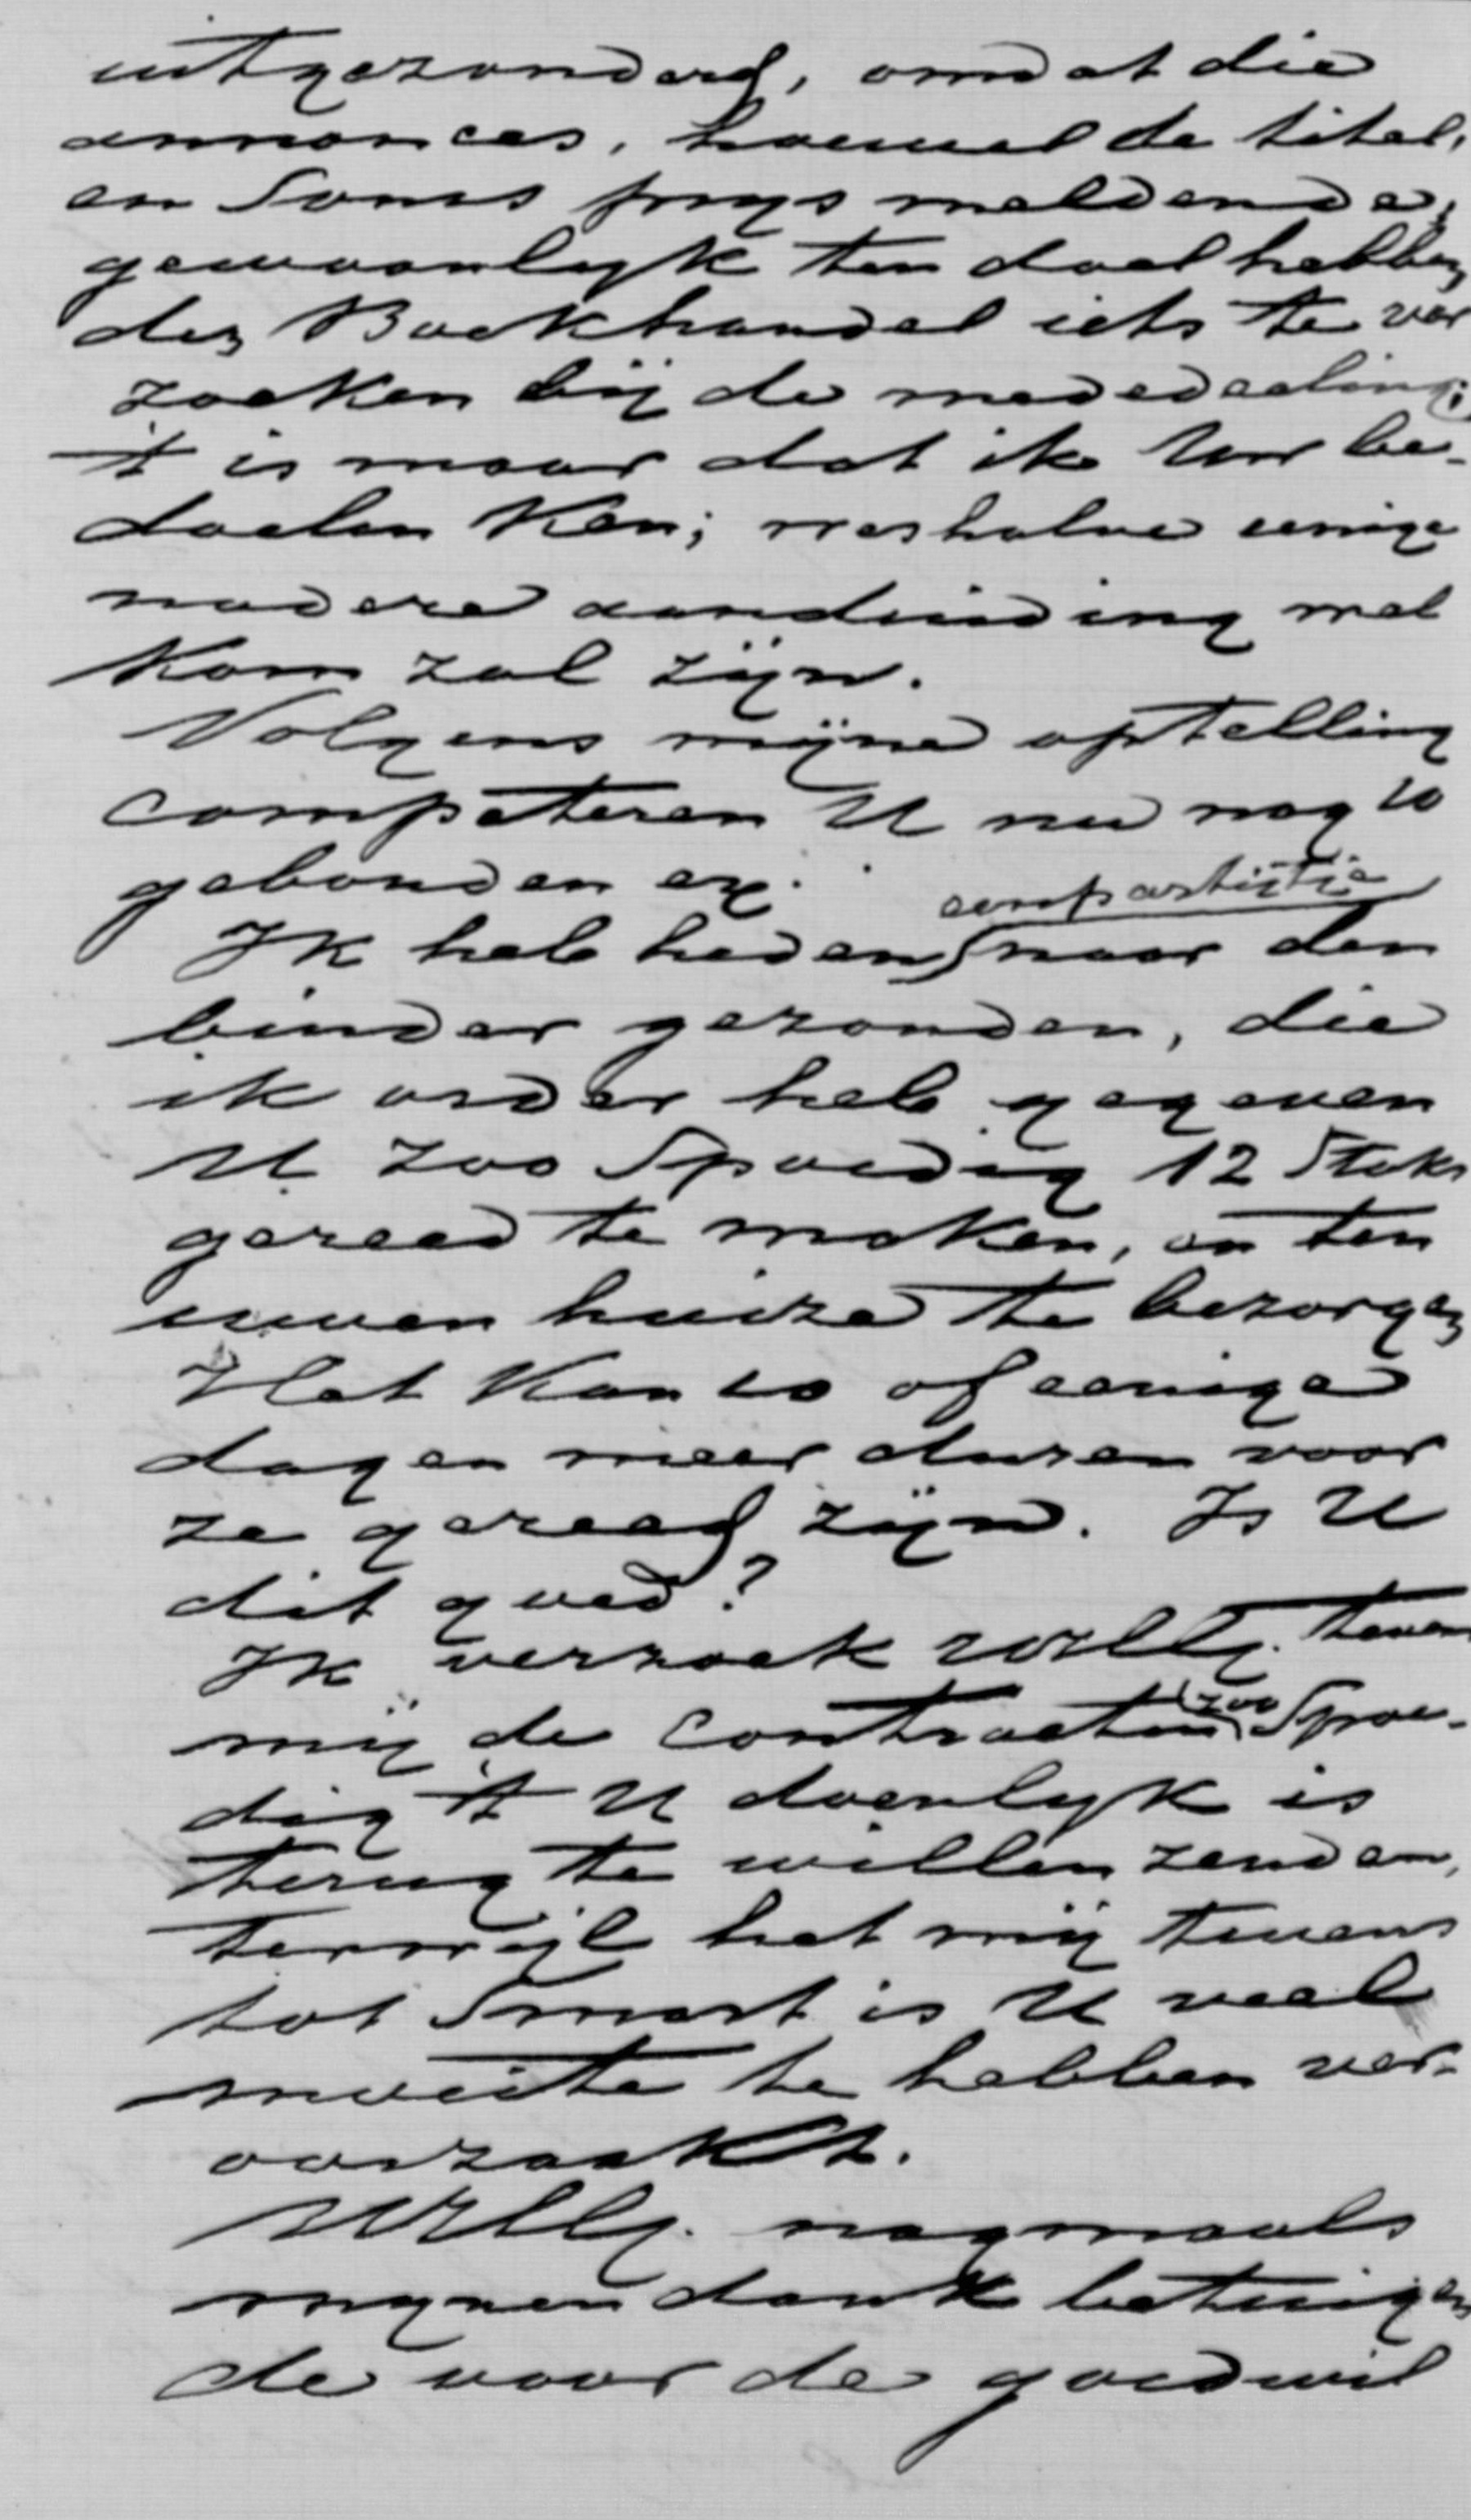 uitgezonderd, omdat die
annonces, hoewel de titel,
en soms prys meldende,
gewoonlyk ten doel hebben
den Boekhandel iets te ver
zoeken bij de mededeeling;
't is maar dat ik Uw be-
doelen ken; weshalve eenige
nadere aanduiding wel
kom zal zijn.
Volgens mijne optelling
competeren U nu nog 10
gebonden ex.
een partijtje
Ik heb heden naar den
binder gezonden, die
ik order heb gegeven
U zoo spoedig 12 stuks
gereed te maken, en ten
uwen huize te bezorgen
Het kan 10 of eenige
dagen meer duren voor
ze gereed zijn. Is U
dit goed?
Ik verzoek UWEG. tevens
mij de contracten zoo spoe-
dig 't U doenlyk is
terug te willen zenden,
terwijl het mij tevens
tot smart is U veel
moeite te hebben ver-
oorzaakt.
UWEG. nogmaals
mynen dank betuigen
de voor de goedwil